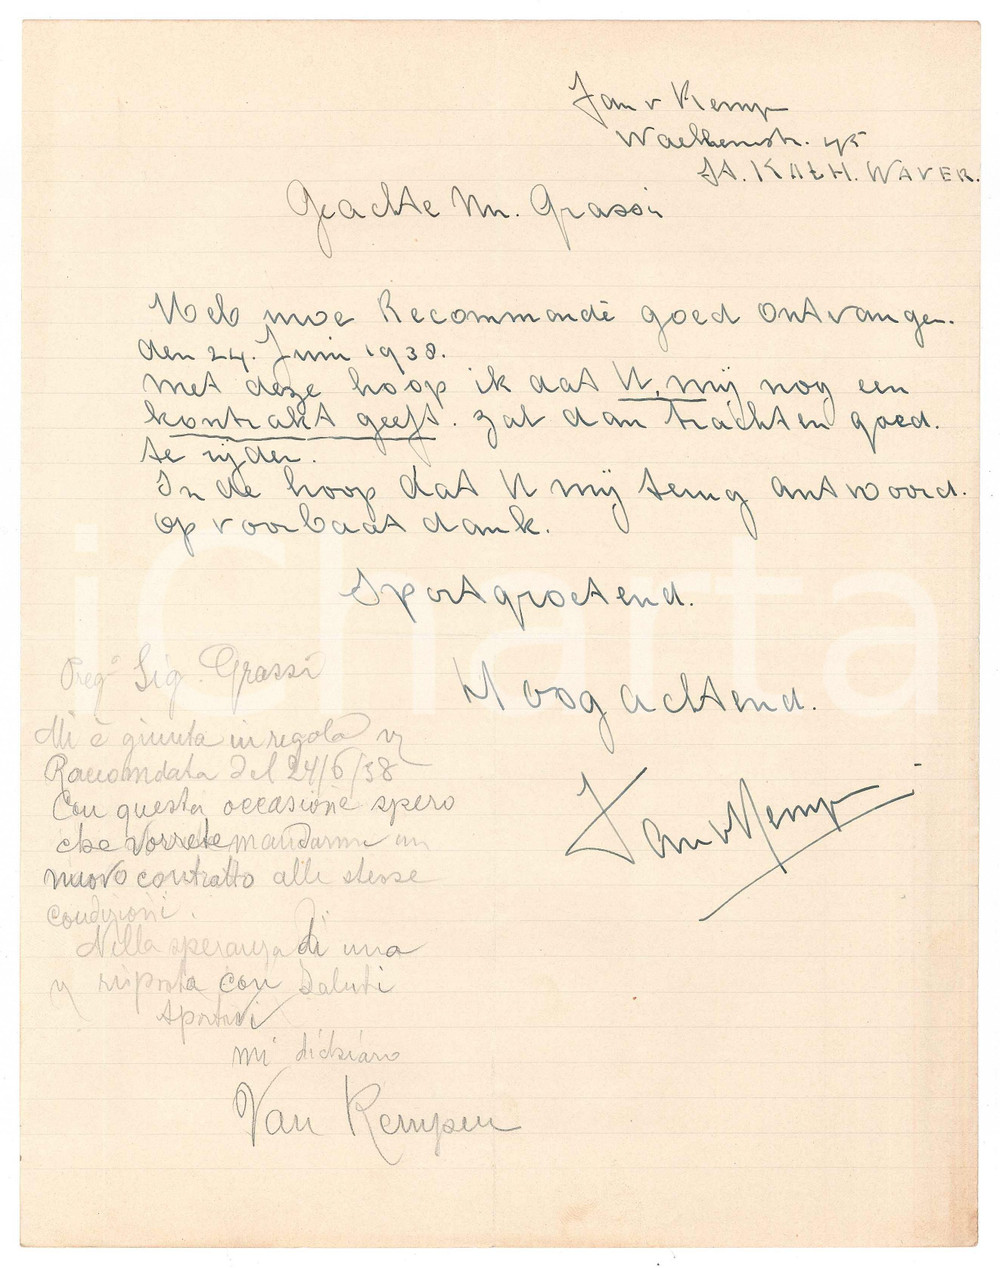 Jan v Kemp
Waelhemstr. 45
St. KATH. WAVER.
Geachte Mr. Grassi
Heb uwe Recommandé goed ontvangen.
den 24. Juni 1938.
Met deze hoop ik dat U, mij nog een
kontrakt geeft. zal dan trachten goed.
te rijden.
In de hoop dat U mij terug antwoord.
op voorbaat dank.
Sportgroetend.
Hoogachtend.
Jan v Kemp
Preg° Sig. Grassi
Mi è giunta in regola
Raccomdata del 24/6/38
Con questa occasione spero
che vorrete mandarmi un
nuovo contratto alle stesse
condizioni.
Nella speranza di una
risposta con saluti
sportivi
mi dichiaro
Van Kempen
iCharta